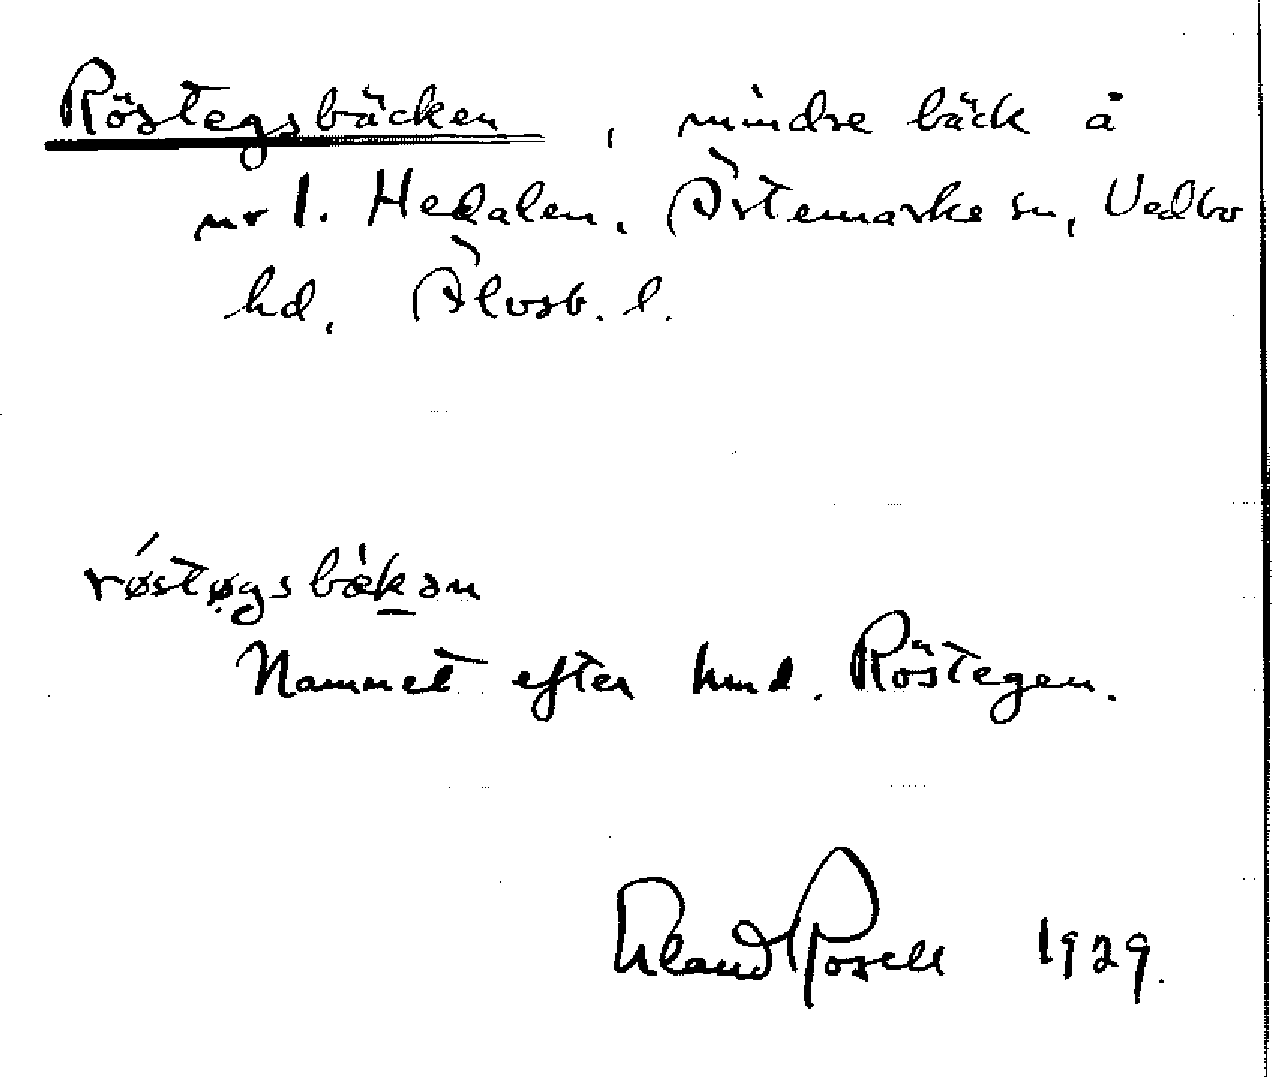 Röstegsbäcken, mindre bäck å
nr 1. Hedalen, Ärtemarke sn, Vedbo
hd, Älvsb. l.
røstøgsbækən
Namnet efter hmd. Röstegen.
Erland Rosell 1929.